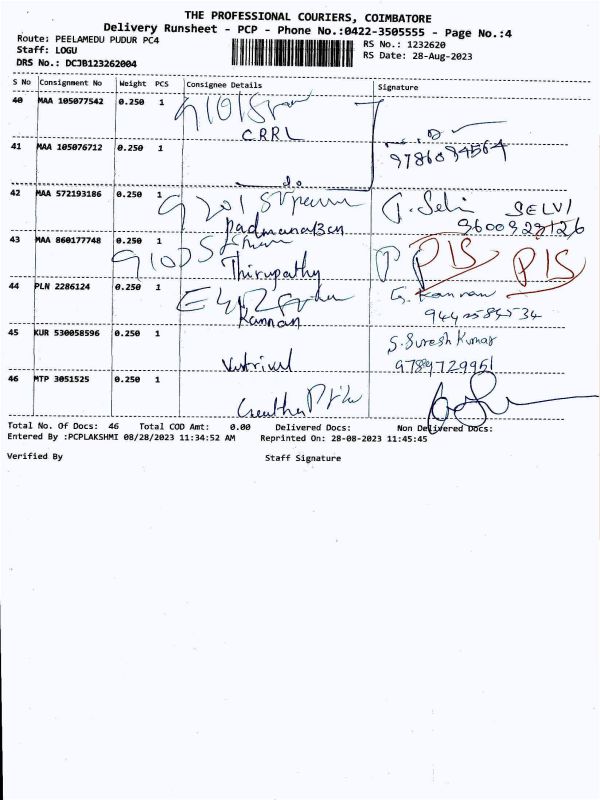 THE PROFESSIONAL COURIERS, COIMBATORE
Delivery Runsheet - PCP - Phone No.:0422-3505555 - Page No.:4
Route: PEELAMEDU PUDUR PC4
RS No.: 1232620
Staff: LOGU
RS Date: 28-Aug-2023
DRS No.: DCJB123262004
S No Consignment No Weight PCS Consignee Details Signature
40 MAA 105077542 0.250 1
CRRL
41 MAA 105076712 0.250 1
9786094564
do
42 MAA 572193186 0.250 1
SELVI
Padmanaban
43 MAA 860177748 0.250 1
P PIS PIS
Thirupathy
44 PLN 2286124 0.250 1
G. Kannan
Kannan
45 KUR 530058596 0.250 1
S. Suresh Kumar
9789729951
46 MTP 3051525 0.250 1
Total No. Of Docs: 46 Total COD Amt: 0.00 Delivered Docs: Non Delivered Docs:
Entered By :PCPLAKSHMI 08/28/2023 11:34:52 AM Reprinted On: 28-08-2023 11:45:45
Verified By Staff Signature